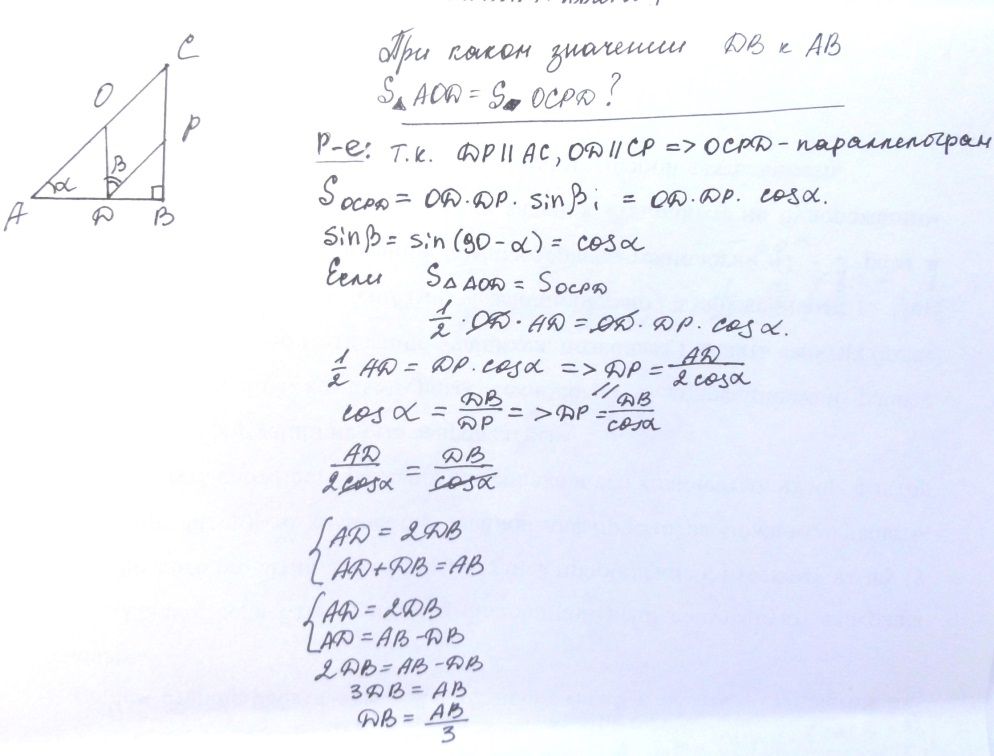 При каком значении DB к AB
S△ AOD = S▱ OCPD?
C
O
P
β
α
A
D
B
Р-е: т.к. DP || AC, OD || CP => OCPD - параллелограм
S OCPD = OD · DP · sin β; = OD · DP · cos α.
sin β = sin (90 - α) = cos α
Если S△ AOD = S OCPD
1/2 · OD · AD = OD · DP · cos α.
1/2 AD = DP · cos α => DP = AD / 2 cos α
cos α = DB / DP => DP = DB / cos α
AD / 2 cos α = DB / cos α
{ AD = 2DB
AD + DB = AB
{ AD = 2DB
AD = AB - DB
2DB = AB - DB
3DB = AB
DB = AB / 3